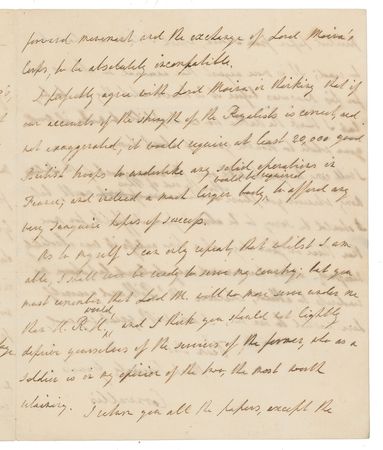 forward movement and the exchange of Lord Moira's
Corps, to be absolutely incompatible.
I perfectly agree with Lord Moira in thinking that if
our accounts of the strength of the Royalists is correct, and
not exaggerated, it would require at least 20,000 good
British troops to undertake any solid operations in
would be required
France, and indeed a much larger body, to afford any
very sanguine hopes of success.
As to myself I can only repeat, that whilst I am
able, I shall ever be ready to serve my country; but you
must remember that Lord M. will no more serve under me
than H. R. H. would, and I think you should not lightly
deprive yourselves of the services of the former, who as a
soldier is in my opinion of the two, the most worth
retaining. I return you all the papers, except the